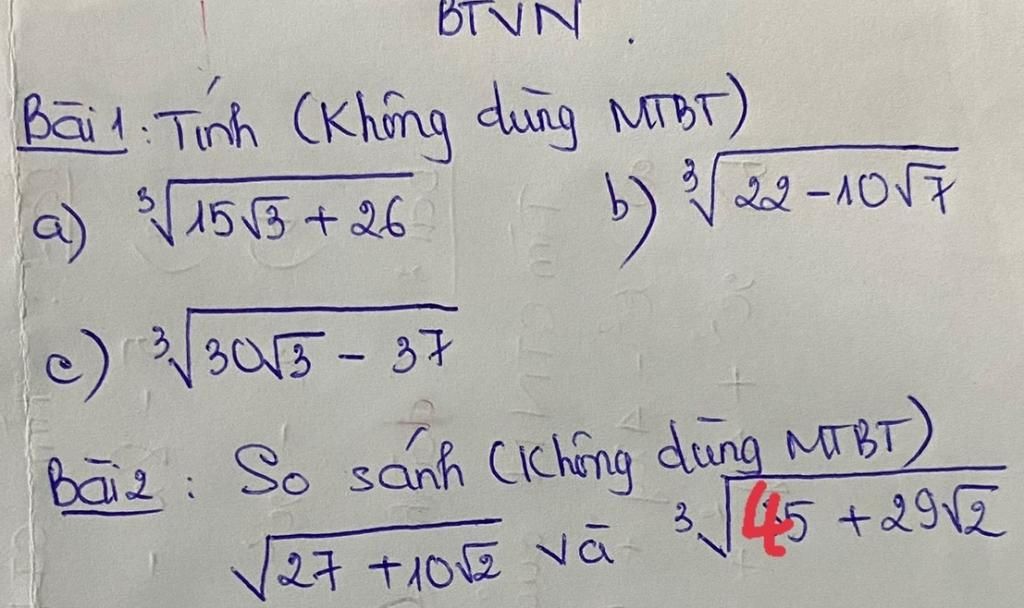 BTVN.
Bài 1: Tính (Không dùng MTBT)
a) ∛(15√3 + 26) b) ∛(22 - 10√7)
c) ∛(30√3 - 37)
Bài 2: So sánh (Không dùng MTBT)
√(27 + 10√2) và ∛(45 + 29√2)